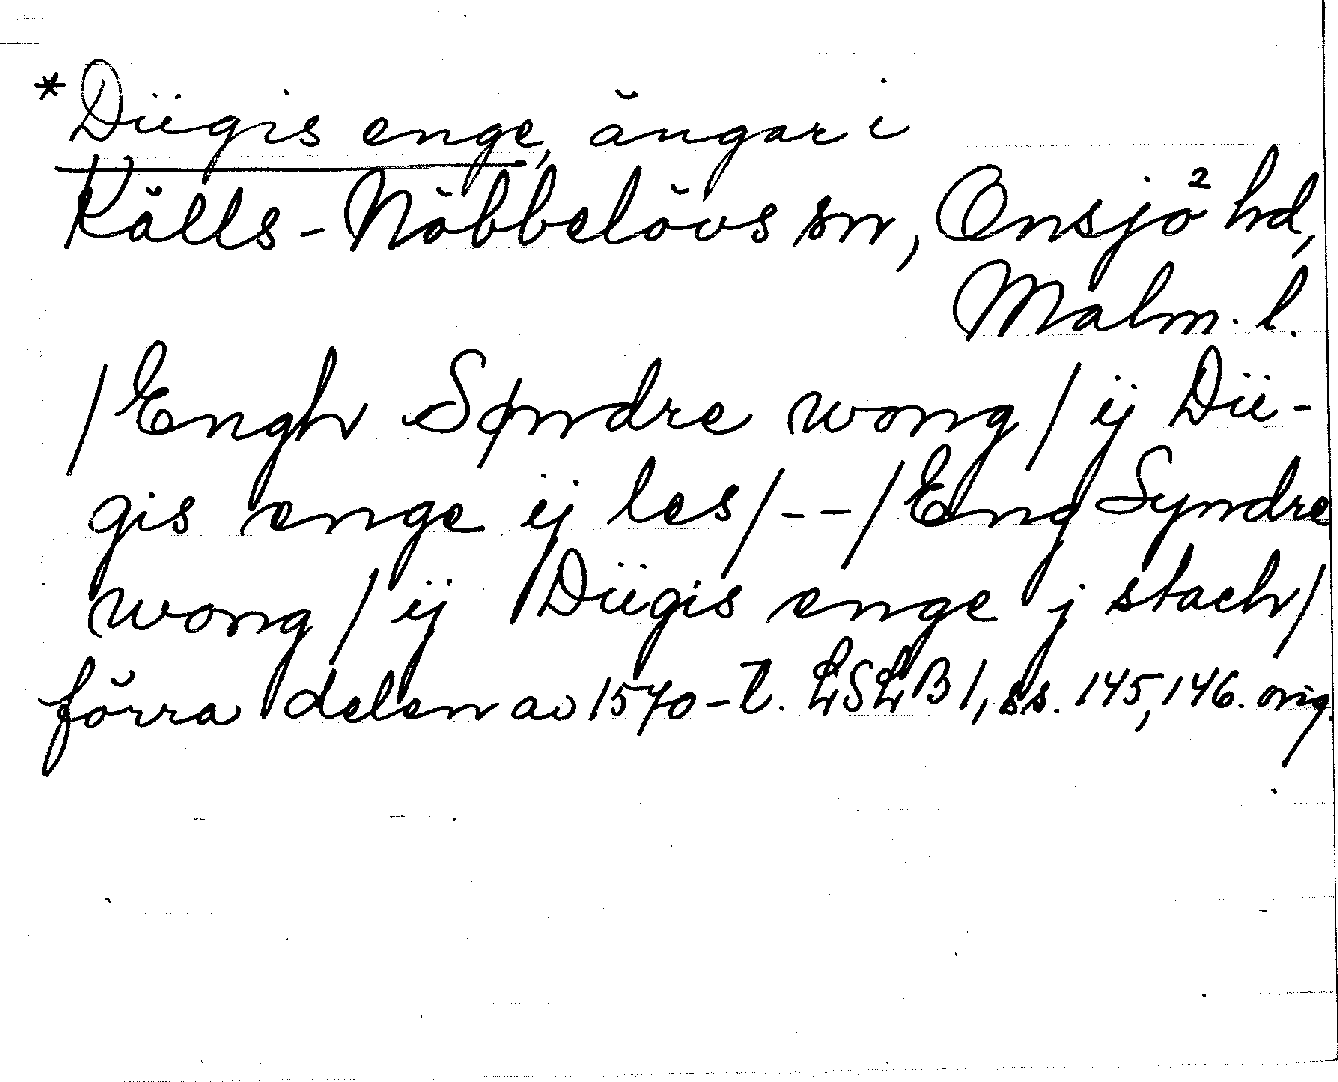 *Diigis enge, ängar i
Källs-Nöbbelövs sn, Onsjö² hd,
Malm. l.
/Engh Søndre wong/ ij Dii-
gis enge ij les/--/Eng Syndre
wong/ ij Diigis enge j stach/
förra delen av 1570-t. LSLB 1, ss. 145, 146. orig.